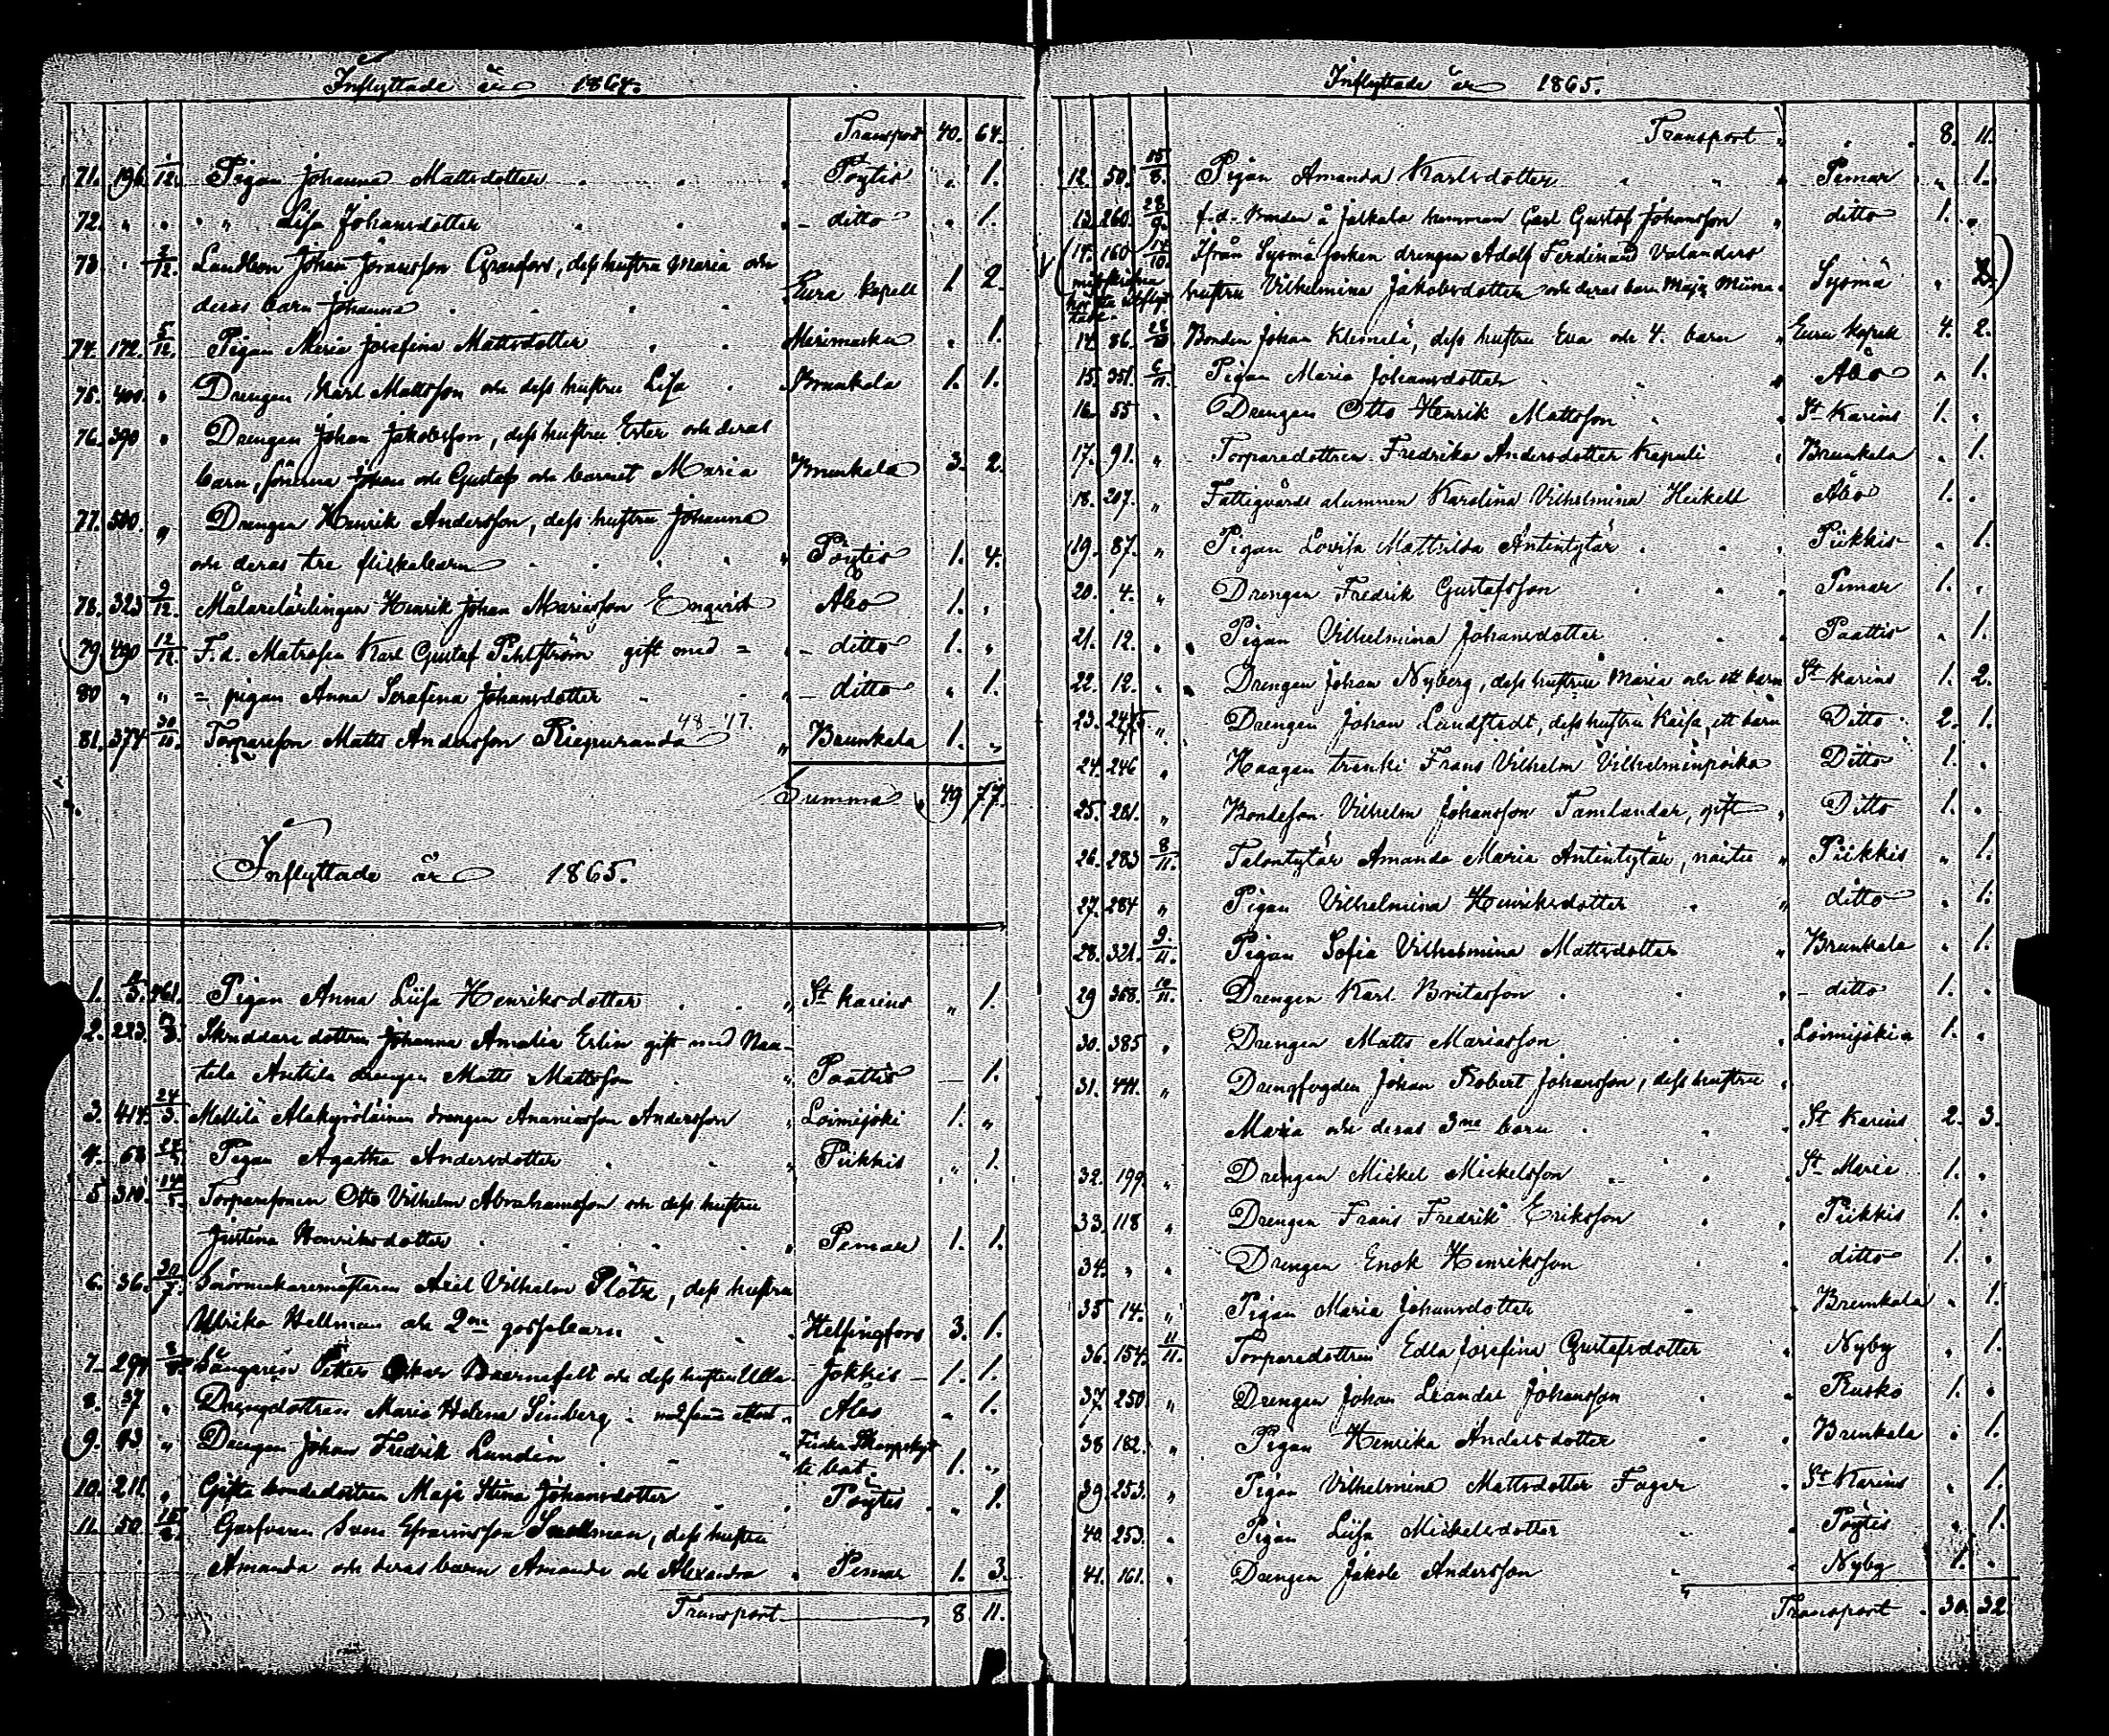 Inflyttade år 1864.
Transport 40. 64.
71. 196. 1/12. Pigan Johanna Mattsdotter Pöytis " 1.
72. " " " " Lisa Johansdotter ditto " 1.
73. " 2/12. Landbon Johan Jöransson Granfors, dess hustru Maria och
deras barn Johanna Eura kapell 1. 2.
74. 172. 5/12. Pigan Maria Josefina Mattsdotter Merimasku " 1.
75. 400. " Drengen Karl Mattsson och dess hustru Lisa Brunkala 1. 1.
76. 390 " Drengen Johan Jakobsson, dess hustru Ester och deras
barn, sönerna Johan och Gustaf och barnet Maria Brunkala 3. 2.
77. 500. " Drengen Henrik Andersson, dess hustru Johanna
och deras tre flickebarn Pöytis 1. 4.
78. 323 9/12. Målarelärlingen Henrik Johan Mariasson Enqvist Åbo 1. "
79. 490 12/12. F.d. Matrosen Karl Gustaf Pihlström gift med = ditto 1. "
80 " " = pigan Anna Serafina Johansdotter ditto " 1.
81. 374 30/11. Torpareson Matts Andersson Riepuranda 48 47. Brunkala 1. "
Summa 49 77.
Inflyttade år 1865.
1. 3. 461. Pigan Anna Liisa Henriksdotter St Karins " 1.
2. 223. Skräddare dottren Johanna Amalia Erlin gift med Naa-
tula Anttila drengen Matts Mattsson Paattis — 1.
3. 414. 24/3. Mellilä Alakyröläinen drengen Ananiasson Andersson Loimijoki 1. "
4. 68 Pigan Agatha Andersdotter Piikkis " 1.
5. 310. 14/5. Torparesonen Otto Vilhelm Abrahamsson och dess hustru
Justina Henriksdotter Pemar 1. 1.
6. 36. 30/7. Snörmakaremästaren Axel Vilhelm Plötz, dess hustru
Ulrika Hellman och 2ne gossebarn Helsingfors 3. 1.
7. 297 Peter Oskar och dess hustru Ulla Jokkis 1. 1.
8. 37 " Drengdottren Maria Helena Sinberg Åbo " 1.
9. 43 " Drengen Johan Fredrik Lundén Finska Skarpskyt-
te bat. 1. "
10. 211. " Gifta bondedottren Maja Stina Johansdotter Pöytis " 1.
11. 50. 15/8. Garfvaren Sven Efraimsson Snellman, dess hustru
Amanda och deras barn Amanda och Alexandra Pemar 1. 3.
Transport 8. 11.
Inflyttade år 1865.
Transport 8. 11.
12. 50. 15/8. Pigan Amanda Karlsdotter Pemar " 1.
13. 260. 28/9. f.d. Bonden å Jalkala hemman Carl Gustaf Johansson ditto 1. "
14. 160 14/10. Ifrån Sysmä socken drengen Adolf Ferdinand Valanders
hustru Vilhelmina Jakobsdotter och deras barn Maja Miina Sysmä " 2.
14. 86. 28/10 Bonden Johan Klemelä, dess hustru Eva och 4. barn Eura Kapell 4. 2.
15. 351. 6/11. Pigan Maria Johansdotter Åbo " 1.
16. 55 " Drengen Otto Henrik Mattsson St Karins 1. "
17. 91. " Torparedottren Fredrika Andersdotter Kepuli Brunkala " 1.
18. 207. " Fattigvårds alumnen Karolina Vilhelmina Heikell Åbo 1. "
19. 87. " Pigan Lovisa Mathilda Antintytär Piikkis " 1.
20. 4. " Drengen Fredrik Gustafsson Pemar 1. "
21. 12. " Pigan Vilhelmina Johansdotter Paattis " 1.
22. 12. " Drengen Johan Nyberg, dess hustru Maria och ett barn St Karins 1. 2.
23. 245. " Drengen Johan Landstedt, dess hustru Kaisa, ett barn Ditto 2. 1.
24. 246 " Haagan trenki Frans Vilhelm Vilhelminpoika Ditto 1. "
25. 281. " Bondeson Vilhelm Johansson Tamlander, gift Ditto 1. "
26. 283 8/11. Talontytär Amanda Maria Antintytär, naitu Piikkis " 1.
27. 284 " Pigan Vilhelmina Henriksdotter ditto " 1.
28. 321. 9/11. Pigan Sofia Vilhelmina Mattsdotter Brunkala " 1.
29 368. 10/11. Drengen Karl Britasson ditto 1. "
30. 385 " Drengen Matts Mariasson Loimijoki 1. "
31. 441. " Drengfogden Johan Robert Johansson, dess hustru
Maria och deras 3ne barn St Karins 2. 3.
32. 199 " Drengen Mickel Mickelsson St Marie 1. "
33. 118 " Drengen Frans Fredrik Eriksson Piikkis 1. "
34. " " Drengen Enok Henriksson ditto 1. "
35 14. " Pigan Maria Johansdotter Brunkala " 1.
36. 154. 11/11. Torparedottren Edla Josefina Gustafsdotter Nyby " 1.
37. 250 " Drengen Johan Leander Johansson Rusko 1. "
38 182. " Pigan Henrika Andersdotter Brunkala " 1.
39. 253. " Pigan Vilhelmina Mattsdotter Fager St Karins " 1.
40. 253. " Pigan Liisa Mickelsdotter Pöytis " 1.
41. 161. " Drengen Jakob Andersson Nyby 1. "
Transport 30. 32.